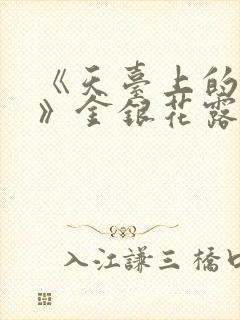 《天臺上的
》金銀花露
入江謙三 橋口